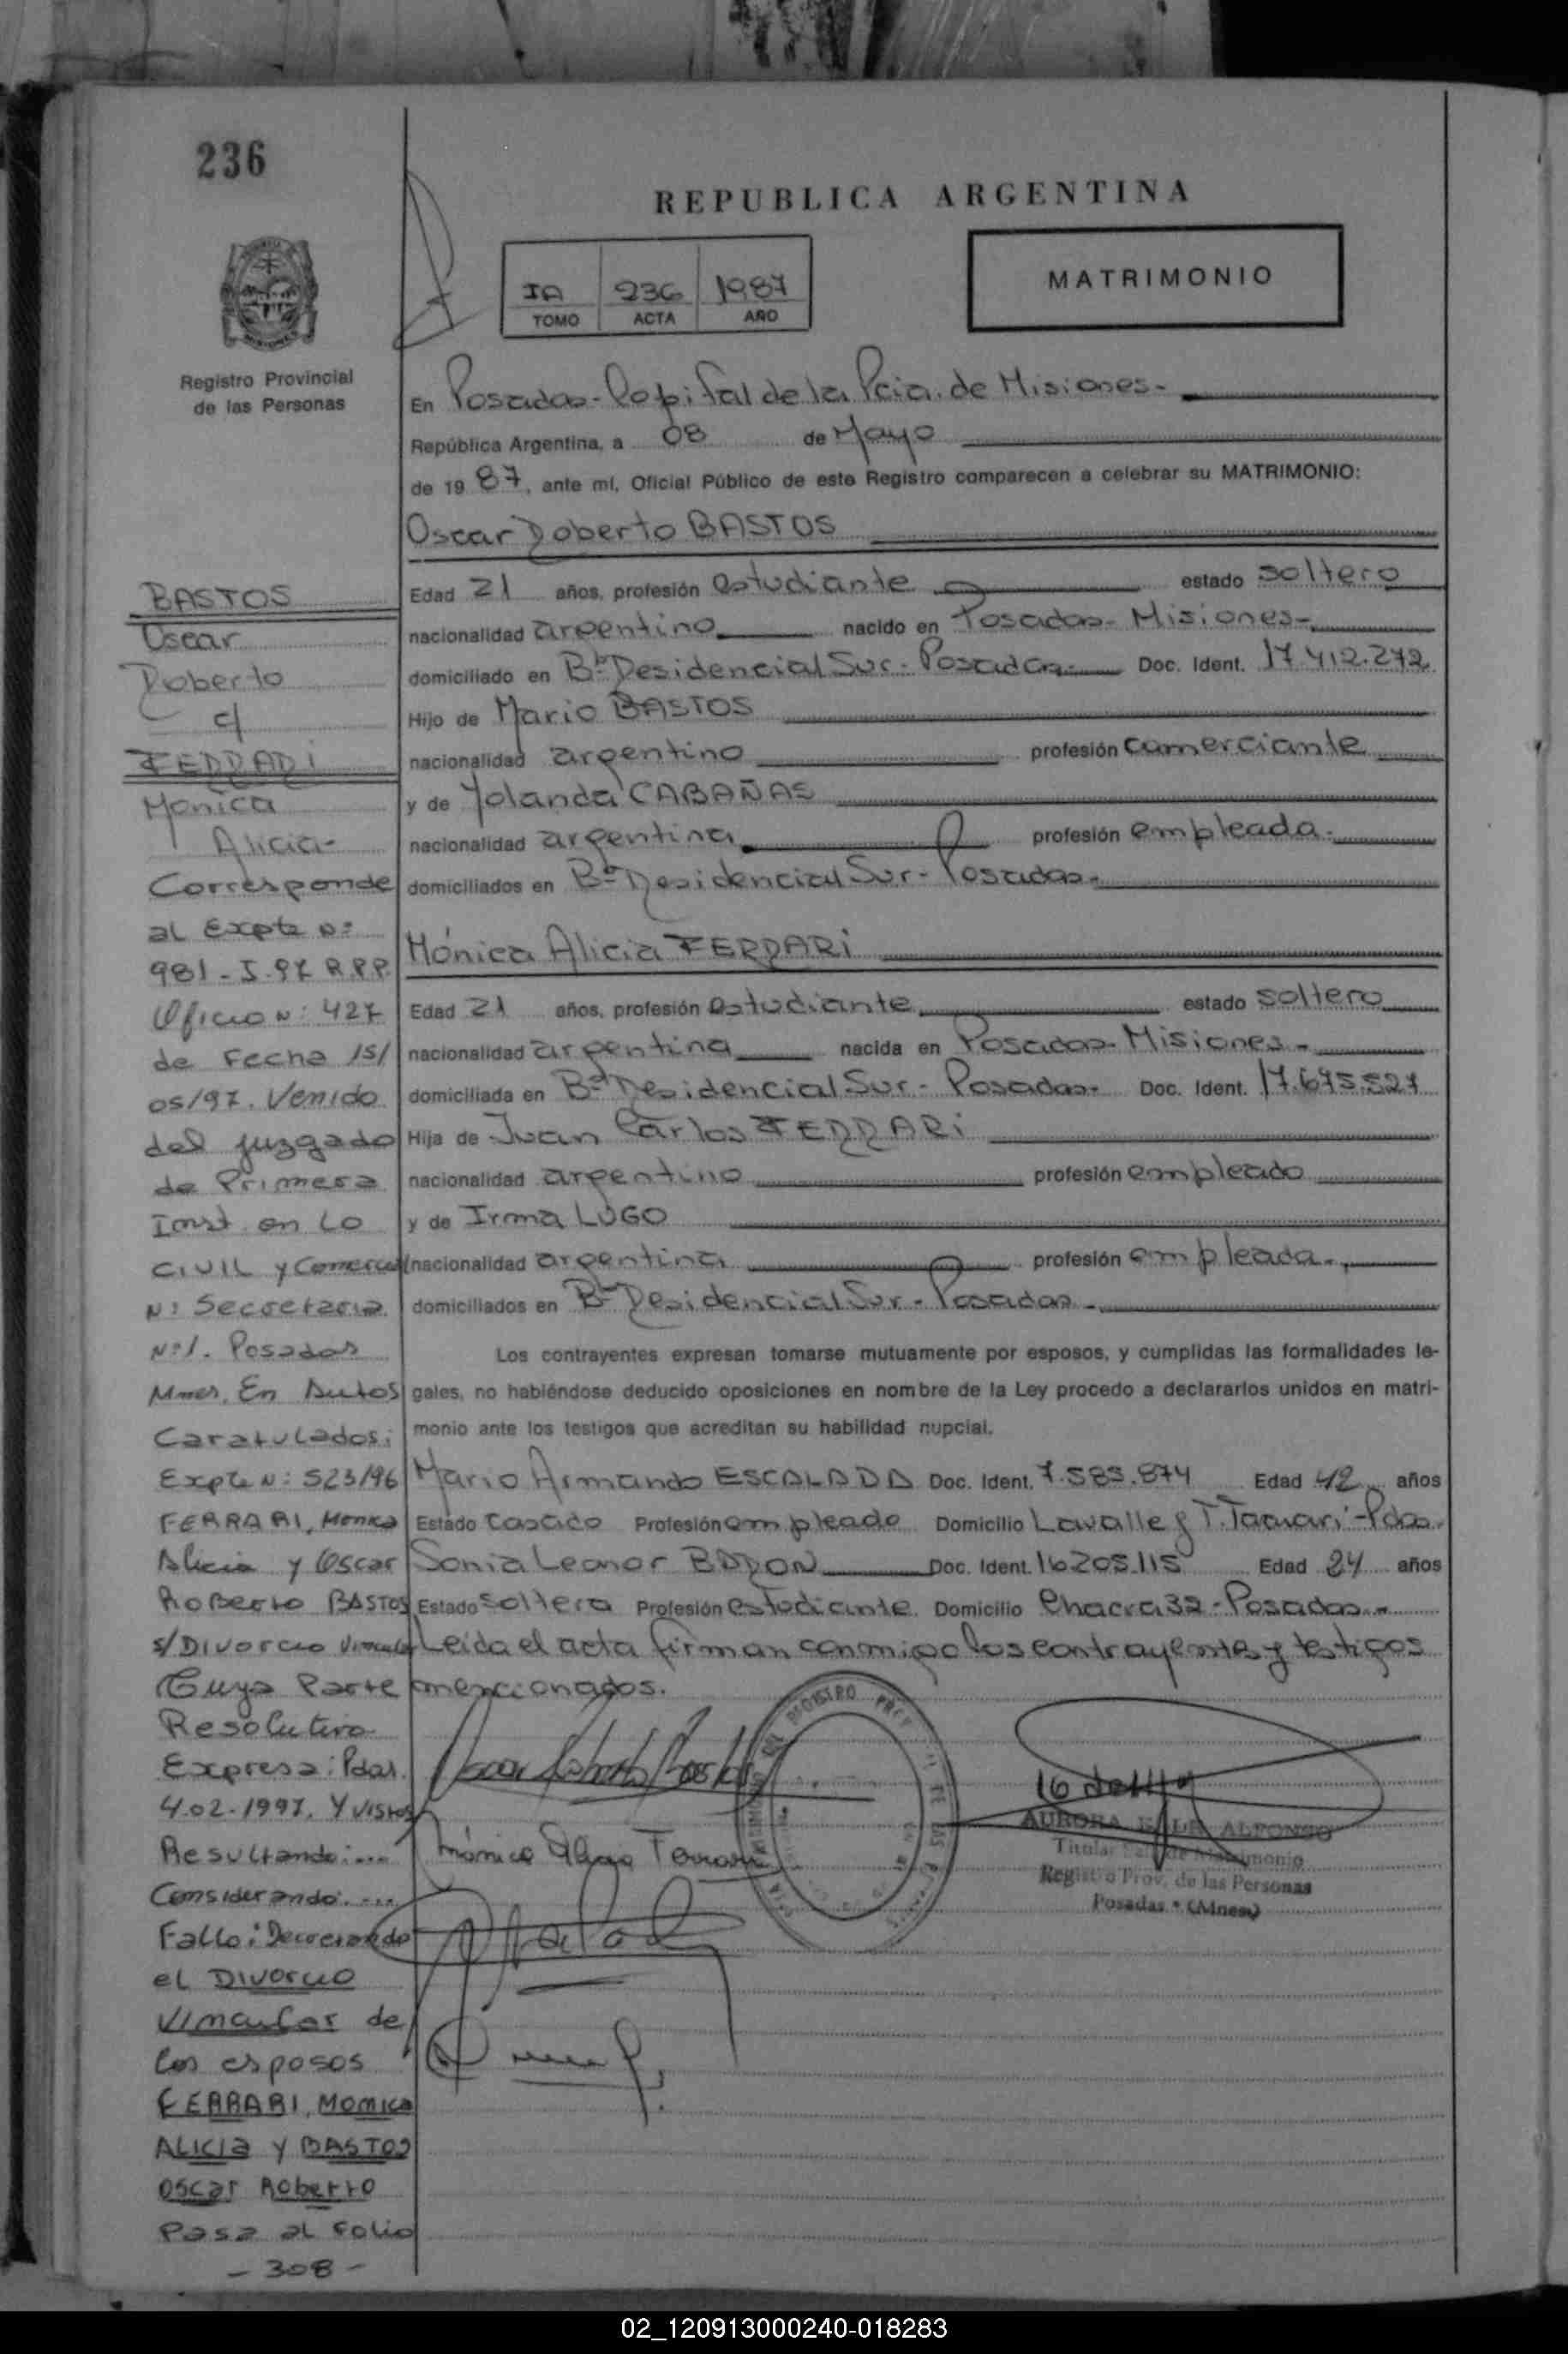 236
REPUBLICA ARGENTINA
IA 236 1987
TOMO ACTA AÑO
MATRIMONIO
Registro Provincial
de las Personas
En Posadas - Capital de la Pcia. de Misiones -
República Argentina, a 08 de Mayo
de 1987, ante mí, Oficial Público de este Registro comparecen a celebrar su MATRIMONIO:
Oscar Roberto BASTOS
Edad 21 años, profesión estudiante estado soltero
nacionalidad argentino nacido en Posadas - Misiones -
domiciliado en Bº Residencial Sur - Posadas - Doc. Ident. 17.412.272
Hijo de Mario BASTOS
nacionalidad argentino profesión comerciante
y de Yolanda CABAÑAS
nacionalidad argentina profesión empleada.
domiciliados en Bº Residencial Sur - Posadas -
Mónica Alicia FERRARI
Edad 21 años, profesión estudiante estado soltero
nacionalidad argentina nacida en Posadas - Misiones -
domiciliada en Bº Residencial Sur - Posadas - Doc. Ident. 17.675.527
Hija de Juan Carlos FERRARI
nacionalidad argentino profesión empleado
y de Irma LUGO
nacionalidad argentina profesión empleada.
domiciliados en Bº Residencial Sur - Posadas -
Los contrayentes expresan tomarse mutuamente por esposos, y cumplidas las formalidades le-
gales, no habiéndose deducido oposiciones en nombre de la Ley procedo a declararlos unidos en matri-
monio ante los testigos que acreditan su habilidad nupcial.
Mario Armando ESCALADA Doc. Ident. 7.583.874 Edad 42 años
Estado casado Profesión empleado Domicilio Lavalle y T. Tacuari - Pdas.
Sonia Leonor Doc. Ident. 16.205.115 Edad 24 años
Estado soltera Profesión estudiante. Domicilio Chacra 32 - Posadas -
Leida el acta firman conmigo los contrayentes y testigos
mencionados.
Oscar Roberto Bastos
Mónica Alicia Ferrari
AURORA DE ALFONSO
Titular Matrimonio
Registro Prov. de las Personas
Posadas • (Mnes)
BASTOS
Oscar
Roberto
c/
FERRARI
Monica
Alicia -
Corresponde
al Expte Nº
981-I-97 R.P.P.
Oficio Nº 427
de Fecha 15/
05/97. Venido
del juzgado
de Primera
Inst. en Lo
CIVIL y Comercial
Nº Secretaria
Nº 1. Posadas
Mnes. En Autos
Caratulados:
Expte Nº: 523/96
FERRARI, Monica
Alicia y Oscar
Roberto BASTOS
s/ Divorcio Vincular
Cuya Parte
Resolutiva
Expresa: Pdas.
4.02-1997. Y Vistos
Resultando: ...
Considerando: ....
Fallo: Decretando
el Divorcio
Vincular de
los esposos
FERRARI, Monica
Alicia y BASTOS
Oscar Roberto
Pasa al Folio
- 308 -
02_120913000240-018283